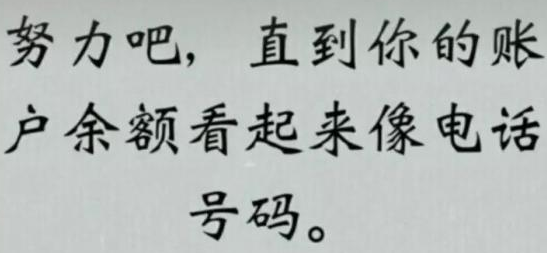 努力吧，直到你的账
户余额看起来像电话
号码。